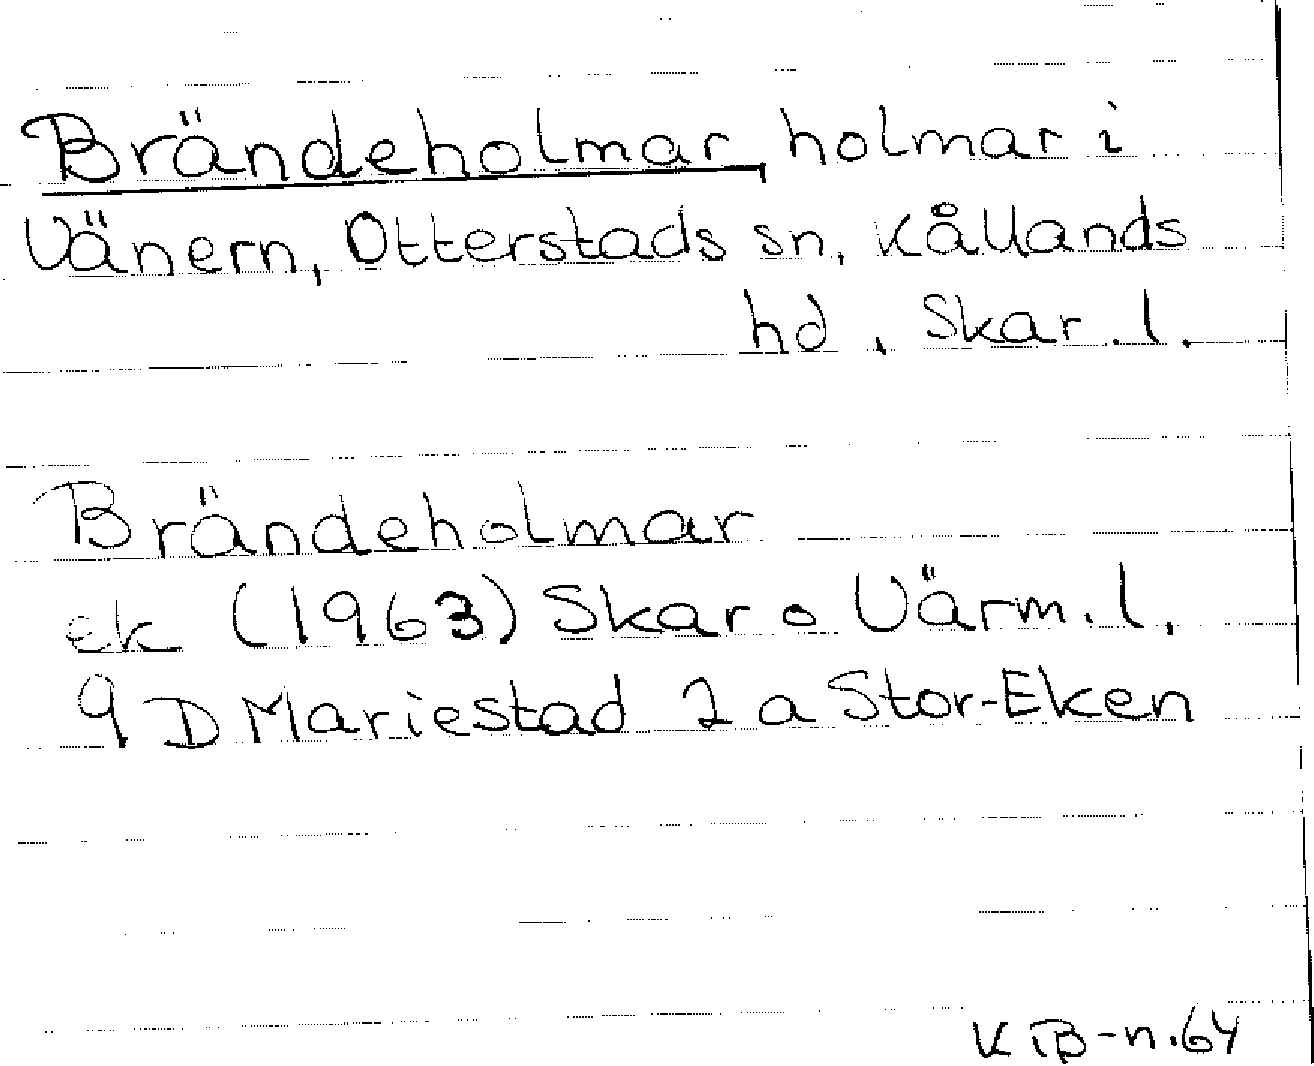 Brändeholmar, holmar i
Vänern, Otterstads sn, Kållands
hd, Skar. l.
Brändeholmar
ek (1963) Skar o Värm. l.
9 D Mariestad 2 a Stor-Eken
K TB-n. 64